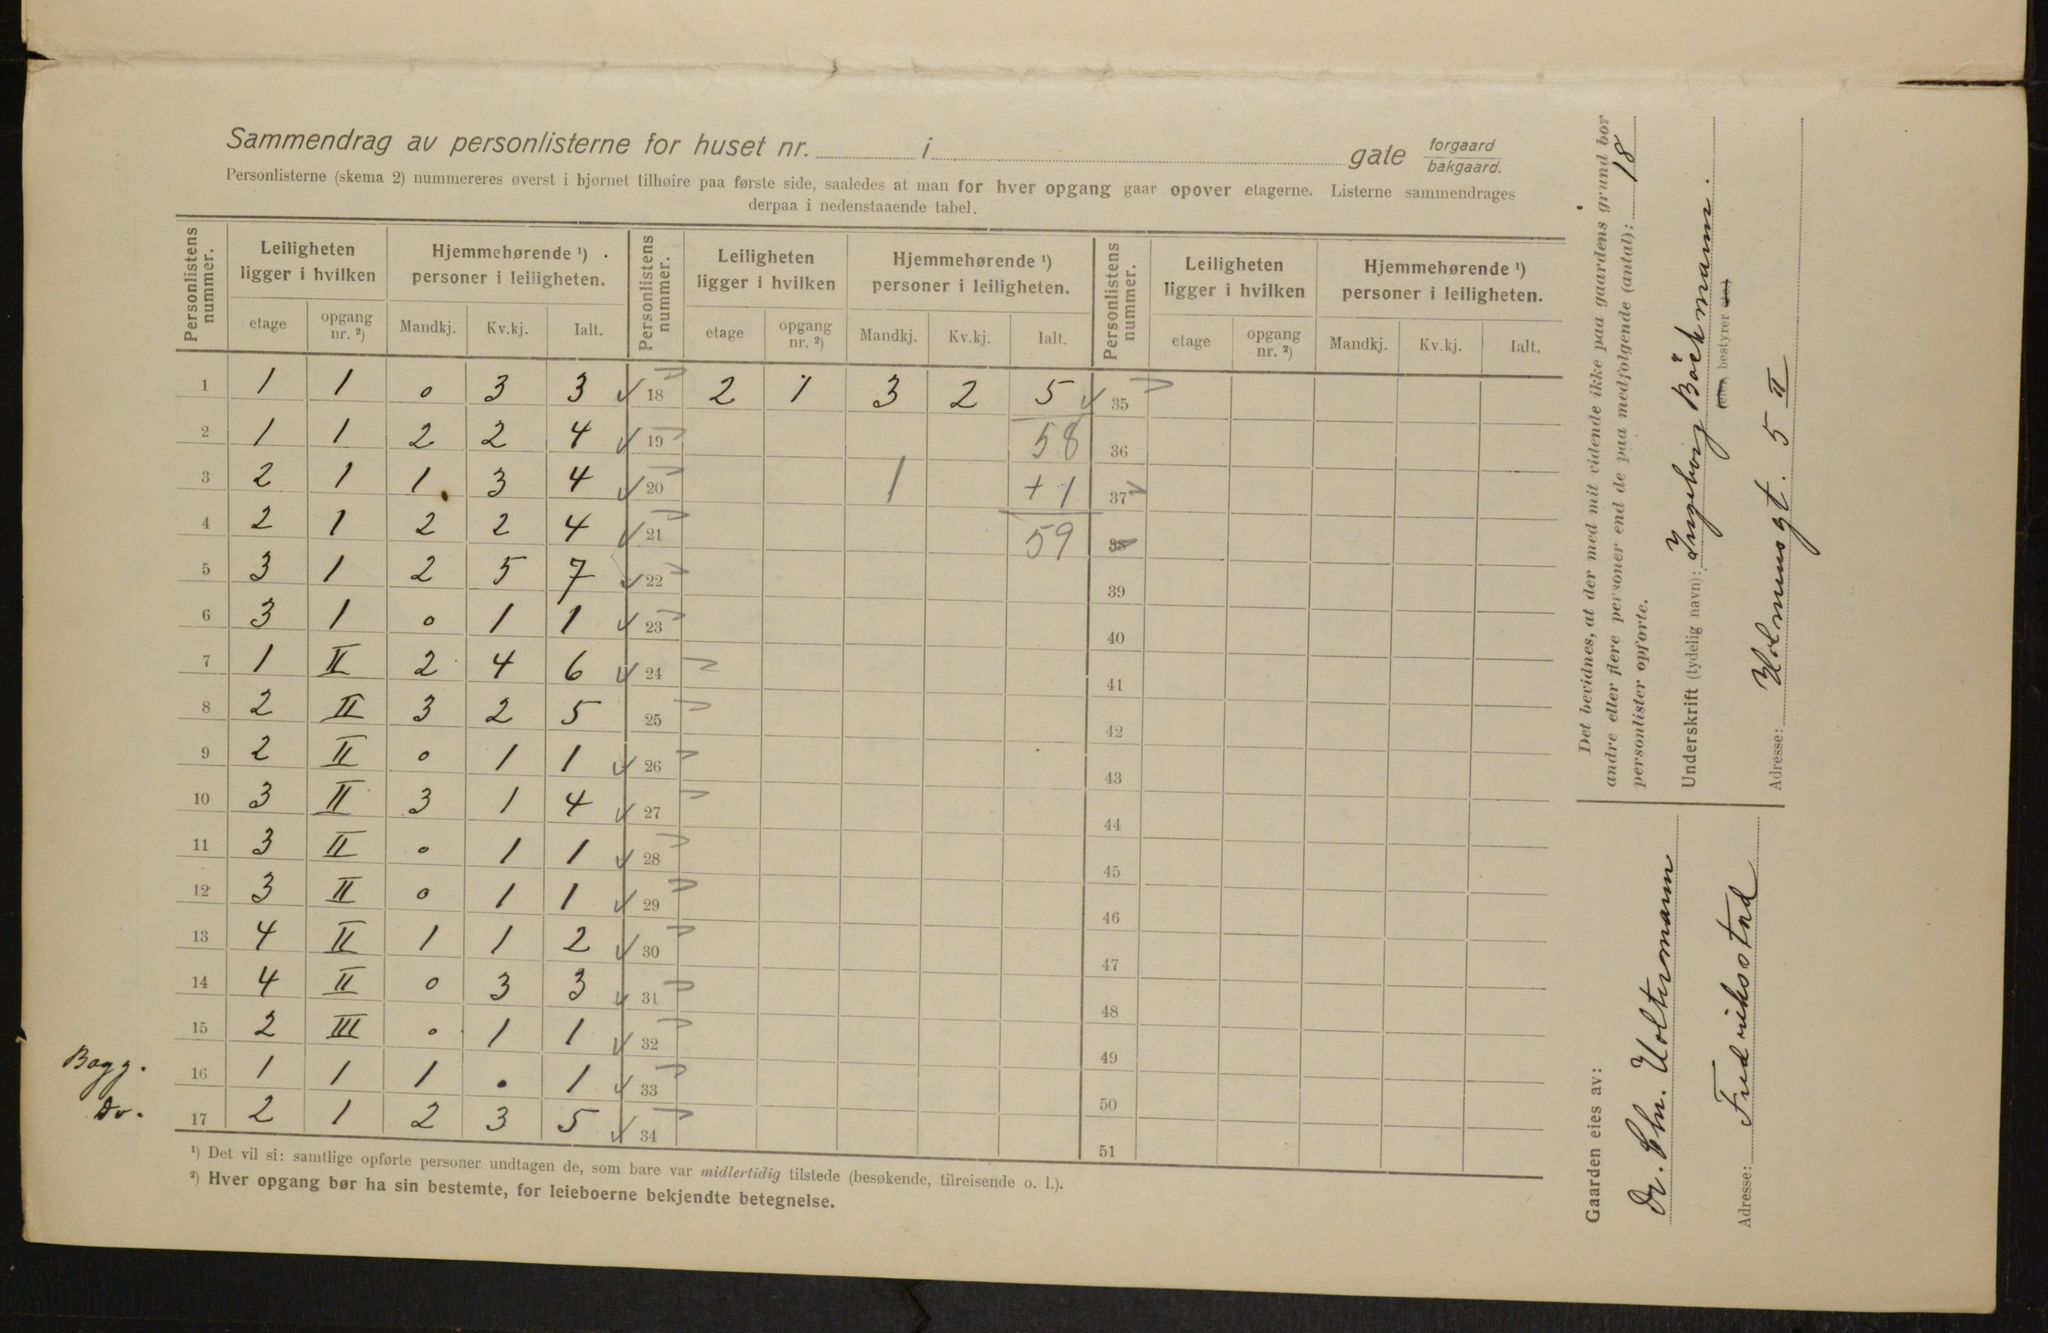 Sammendrag av personlisterne for huset nr. i gate forgaard bakgaard.
Personlisterne (skema 2) nummereres øverst i hjørnet tilhøire paa første side, saaledes at man for hver opgang gaar opover etagerne. Listerne sammendrages
derpaa i nedenstaaende tabel.
Personlistens nummer. Leiligheten ligger i hvilken Hjemmehørende ¹) personer i leiligheten. Personlistens nummer. Leiligheten ligger i hvilken Hjemmehørende ¹) personer i leiligheten. Personlistens nummer. Leiligheten ligger i hvilken Hjemmehørende ¹) personer i leiligheten.
etage opgang nr. ²) Mandkj. Kv.kj. Ialt. etage opgang nr. ²) Mandkj. Kv.kj. Ialt. etage opgang nr. ²) Mandkj. Kv.kj. Ialt.
1 1 1 0 3 3 18 2 1 3 2 5 35
2 1 1 2 2 4 19 58 36
3 2 1 1 3 4 20 1 +1 37
4 2 1 2 2 4 21 59 38
5 3 1 2 5 7 22 39
6 3 1 0 1 1 23 40
7 1 II 2 4 6 24 41
8 2 II 3 2 5 25 42
9 2 II 0 1 1 26 43
10 3 II 3 1 4 27 44
11 3 II 0 1 1 28 45
12 3 II 0 1 1 29 46
13 4 II 1 1 2 30 47
14 4 II 0 3 3 31 48
15 2 III 0 1 1 32 49
Bagg. 16 1 1 1 . 1 33 50
Do. 17 2 1 2 3 5 34 51
¹) Det vil si: samtlige opførte personer undtagen de, som bare var midlertidig tilstede (besøkende, tilreisende o. l.).
²) Hver opgang bør ha sin bestemte, for leieboerne bekjendte betegnelse.
Det bevidnes, at der med mit vidende ikke paa gaardens grund bor
andre eller flere personer end de paa medfølgende (antal): 18
personlister opførte.
Underskrift (tydelig navn): Ingeborg Böckmann.
bestyrer
Adresse: Holmensgt. 5 II
Gaarden eies av:
Dr. Chr. Holtermann
Adresse: Fredriksstad